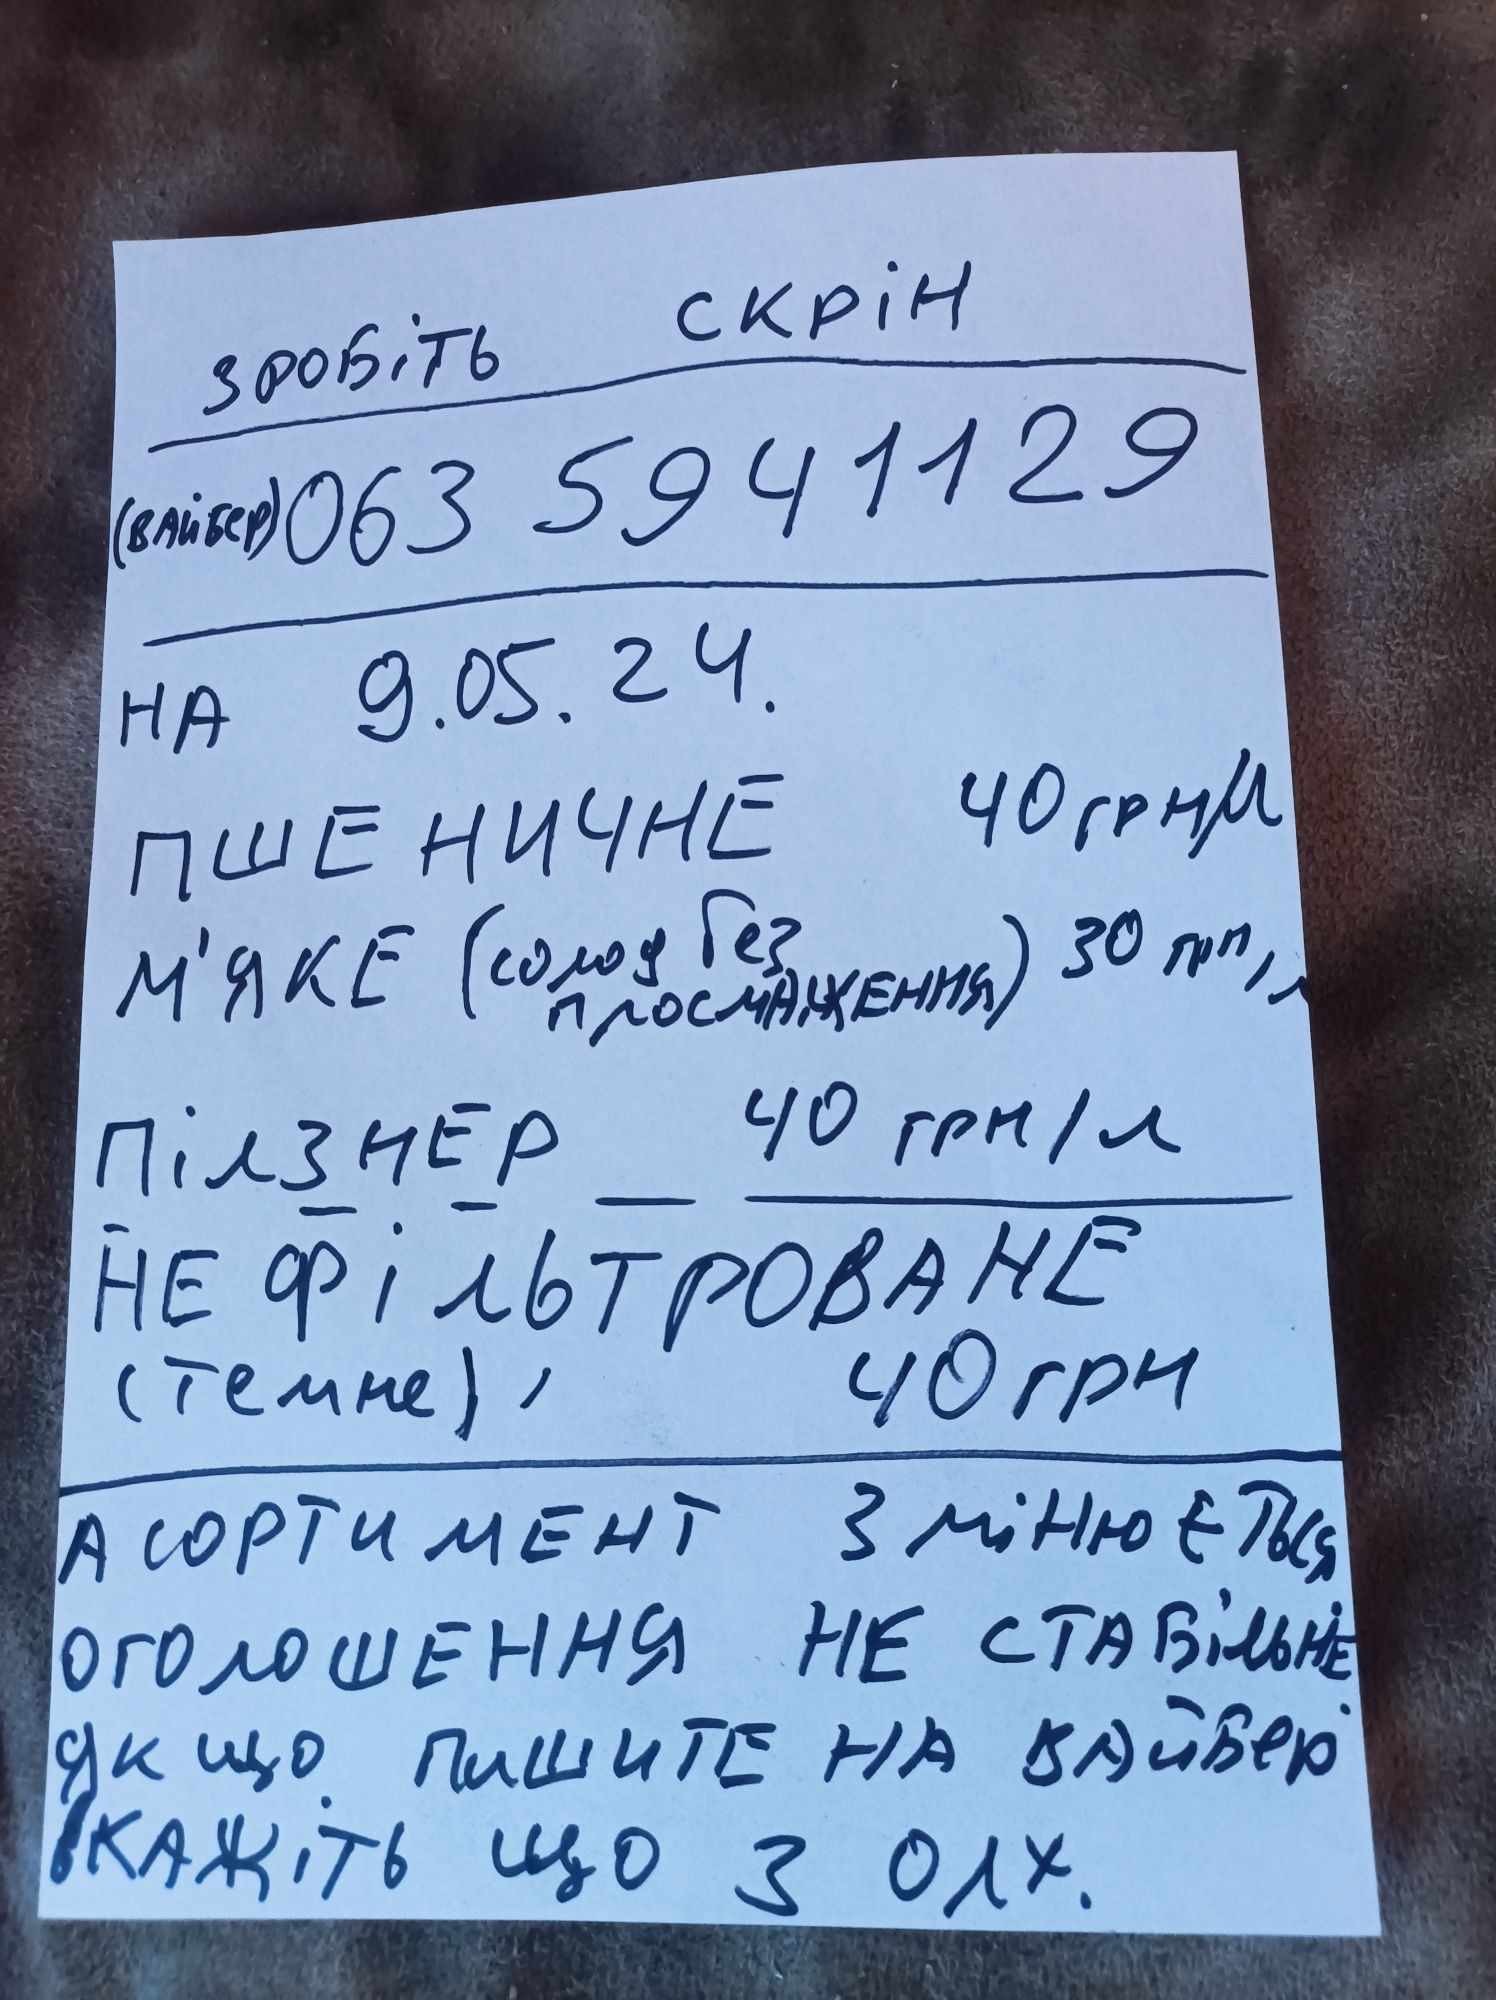 ЗРОБІТЬ СКРІН
(ВАЙБЕР) 063 5941129
НА 9.05.24.
ПШЕНИЧНЕ 40 грн/л
М'ЯКЕ (солод без
просмаження) 30 грн/л
ПІЛЗНЕР 40 грн/л
НЕ ФІЛЬТРОВАНЕ
(темне), 40 грн
АСОРТИМЕНТ ЗМІНЮЄТЬСЯ
ОГОЛОШЕННЯ НЕ СТАБІЛЬНЕ
ЯКЩО ПИШИТЕ НА ВАЙБЕР
КАЖІТЬ ЩО З ОЛХ.